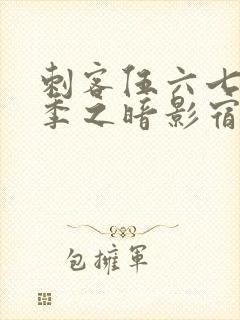 刺客伍六七
季之暗影宿
包擁軍